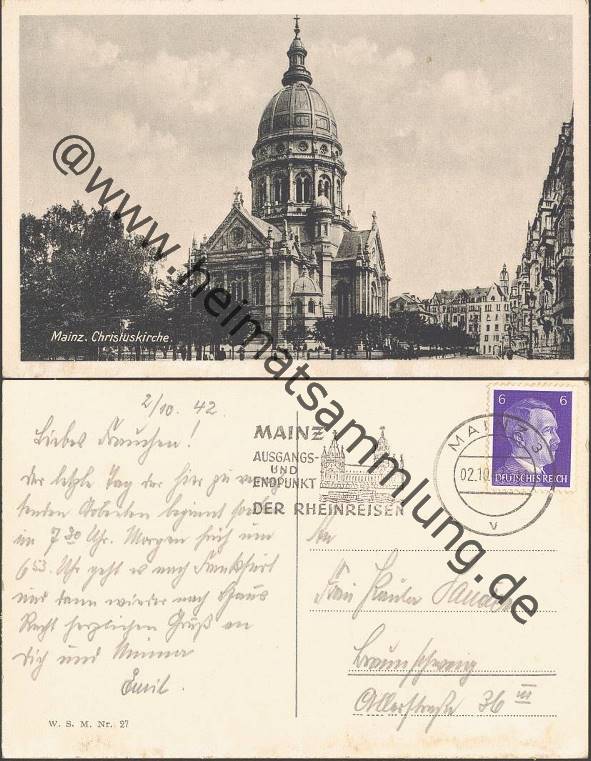 Mainz. Christuskirche.
@www.heimatsammlung.de
2/10. 42
Liebes Frauchen!
Der letzte Tag der hier zu
Arbeiten beginnt
im 7 30 Uhr. Morgen früh um
6 53 Uhr geht es nach Frankfurt
und dann wieder nach Haus
Recht herzlichen Gruß an
Dich und Mimma
Emil.
W. S. M. Nr. 27
MAINZ
AUSGANGS-
UND
ENDPUNKT
DER RHEINREISEN
MAINZ 3
02.10
v
6 6
DEUTSCHES REICH
An
Frau
Braunschweig
Allerstraße 36 III